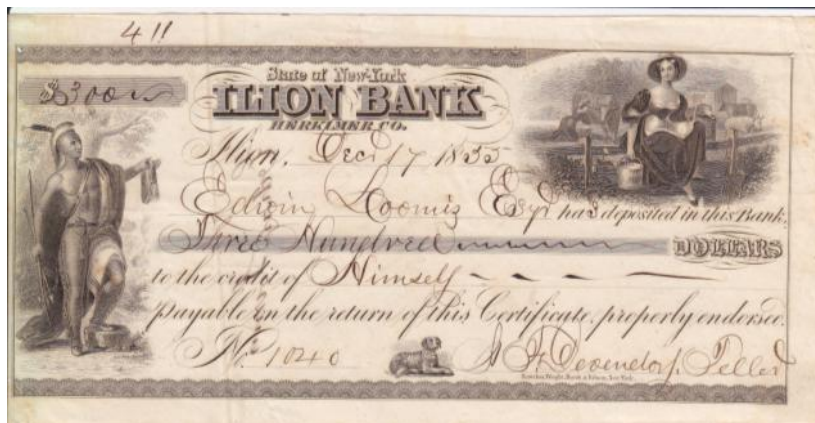 4 11
$300
State of New-York
ILION BANK
HERKIMER CO.
Ilion, Decr 17 1855
Edwin Loomis Esqr has deposited in this Bank,
Three Hundred DOLLARS
to the credit of Himself
Payable on the return of this Certificate, properly endorsed.
No. 1040 Devendorf Teller